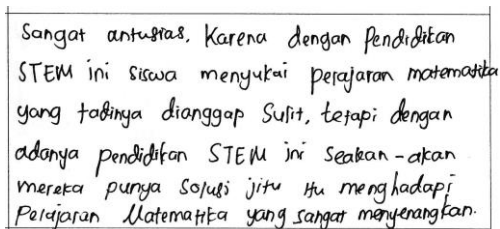 Sangat antusias, Karena dengan Pendidikan
STEM ini siswa menyukai pelajaran matematika
yang tadinya dianggap Sulit, tetapi dengan
adanya pendidikan STEM ini seakan-akan
mereka punya solusi jitu utk menghadapi
Pelajaran Matematika yang sangat menyenangkan.